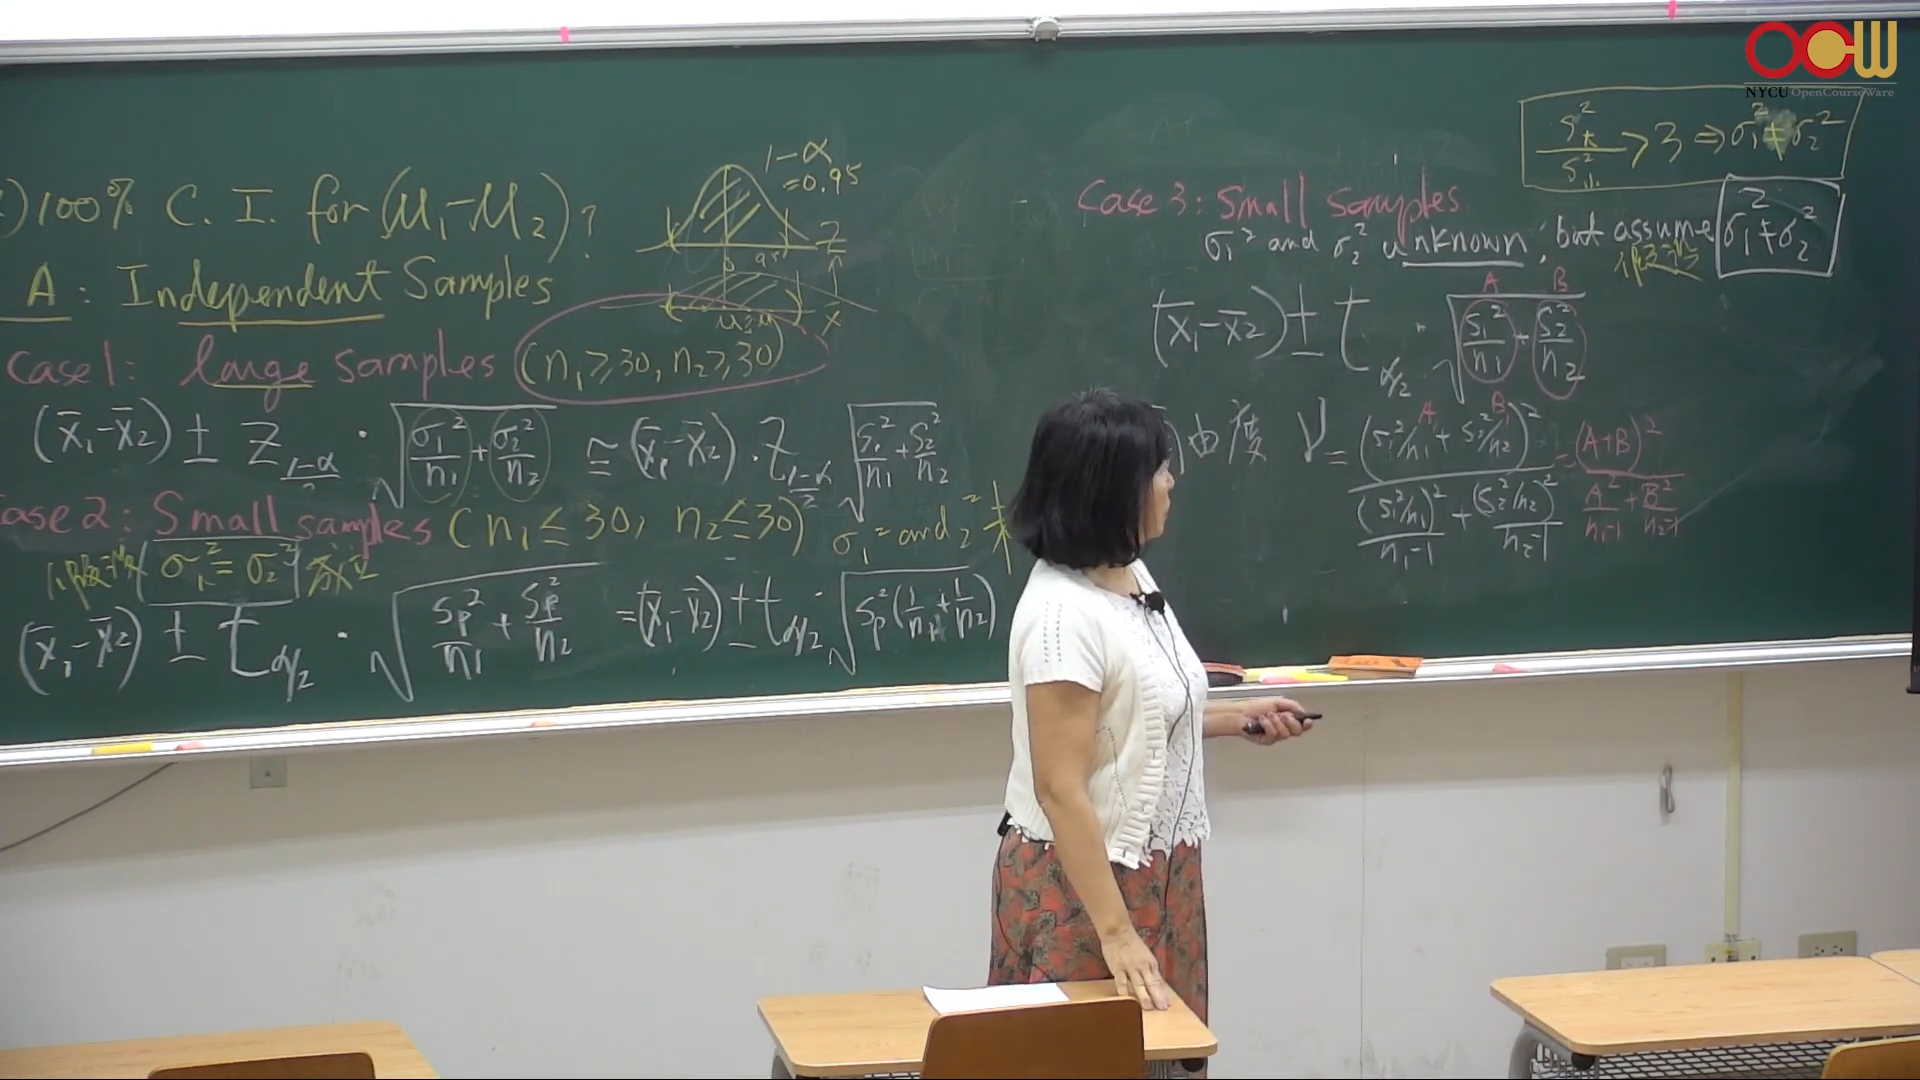 OCW
NYCU OpenCourseWare
)100% C. I. for (μ₁-μ₂)?
1-α
=0.95
Z
0
x̄
A : Independent Samples
Case 1: large samples (n₁≥30, n₂≥30)
(x̄₁-x̄₂) ± Z_{1-α/2} · √(σ₁²/n₁ + σ₂²/n₂) ≅ (x̄₁-x̄₂) · Z_{1-α/2} √(s₁²/n₁ + s₂²/n₂)
Case 2: Small samples (n₁≤30, n₂≤30) σ₁² and ₂² 未
假設 (σ₁² = σ₂²) 成立
(x̄₁-x̄₂) ± t_{α/2} · √(Sp²/n₁ + Sp²/n₂) = (x̄₁-x̄₂) ± t_{α/2} · √(Sp²(1/n₁ + 1/n₂))
> 3 ⇒ σ₁² ≠ σ₂²
Case 3: Small Samples
σ₁² and σ₂² unknown, but assume σ₁² ≠ σ₂²
假設
A B
(x̄₁-x̄₂) ± t_{α/2} · √(S₁²/n₁ + S₂²/n₂)
A B
由度 ν = (s₁²/n₁ + s₂²/n₂)² / ((s₁²/n₁)²/(n₁-1) + (s₂²/n₂)²/(n₂-1)) = (A+B)² / (A²/(n₁-1) + B²/(n₂-1))